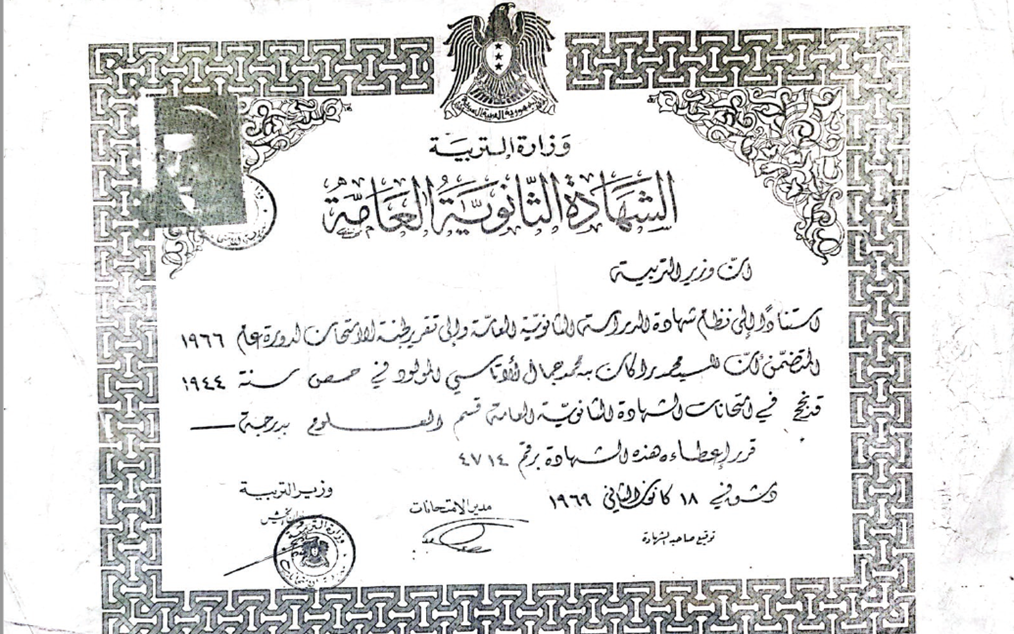 الجمهورية العربية السورية
وزارة التربية
الشهادة الثانوية العامة
ان وزير التربية
استنادًا إلى نظام شهادة الدراسة الثانوية العامة وإلى تقرير لجنة الامتحان لدورة عام ١٩٦٦
المتضمن أن السيد محمد راكان بن محمد جمال الأتاسي المولود في حمص سنة ١٩٤٤
قد نجح في امتحانات الشهادة الثانوية العامة قسم العلوم بدرجة
قرر إعطاءه هذه الشهادة برقم ٤٧١٤
دمشق في ١٨ كانون الثاني ١٩٦٩
توقيع صاحب الشهادة
مدير الامتحانات
وزير التربية
وزارة التربية